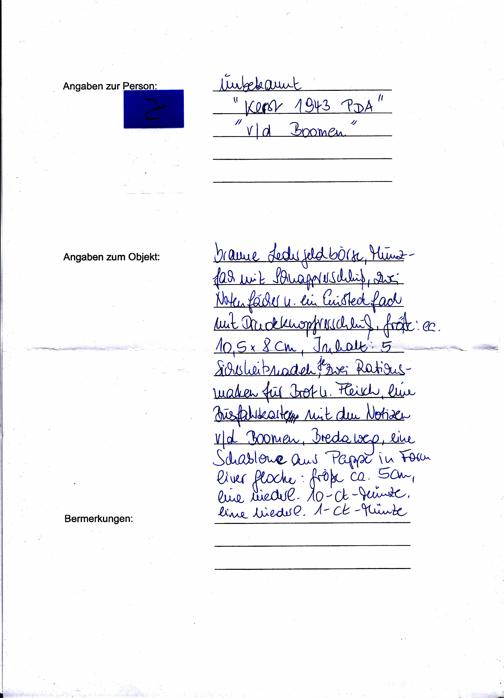 Angaben zur Person: Unbekannt
"Kerst 1943 PDA"
"v/d Boomen"
Angaben zum Objekt: braune Ledergeldbörse, Münz-
fach mit Schnappverschluß, zwei
Notenfächer u. ein Einsteckfach
mit Druckknopfverschluß, Größe: ca.
10,5 x 8 cm, Inhalt: 5
Sicherheitsnadeln, zwei Rations-
marken für Brot u. Fleisch, eine
Busfahrkarte mit den Notizen
v/d Boomen, Bredaweg, eine
Schablone aus Pappe in Form
einer Glocke: Größe ca. 5cm,
eine niederl. 10-ct-Münze,
eine niederl. 1-ct-Münze
Bermerkungen: